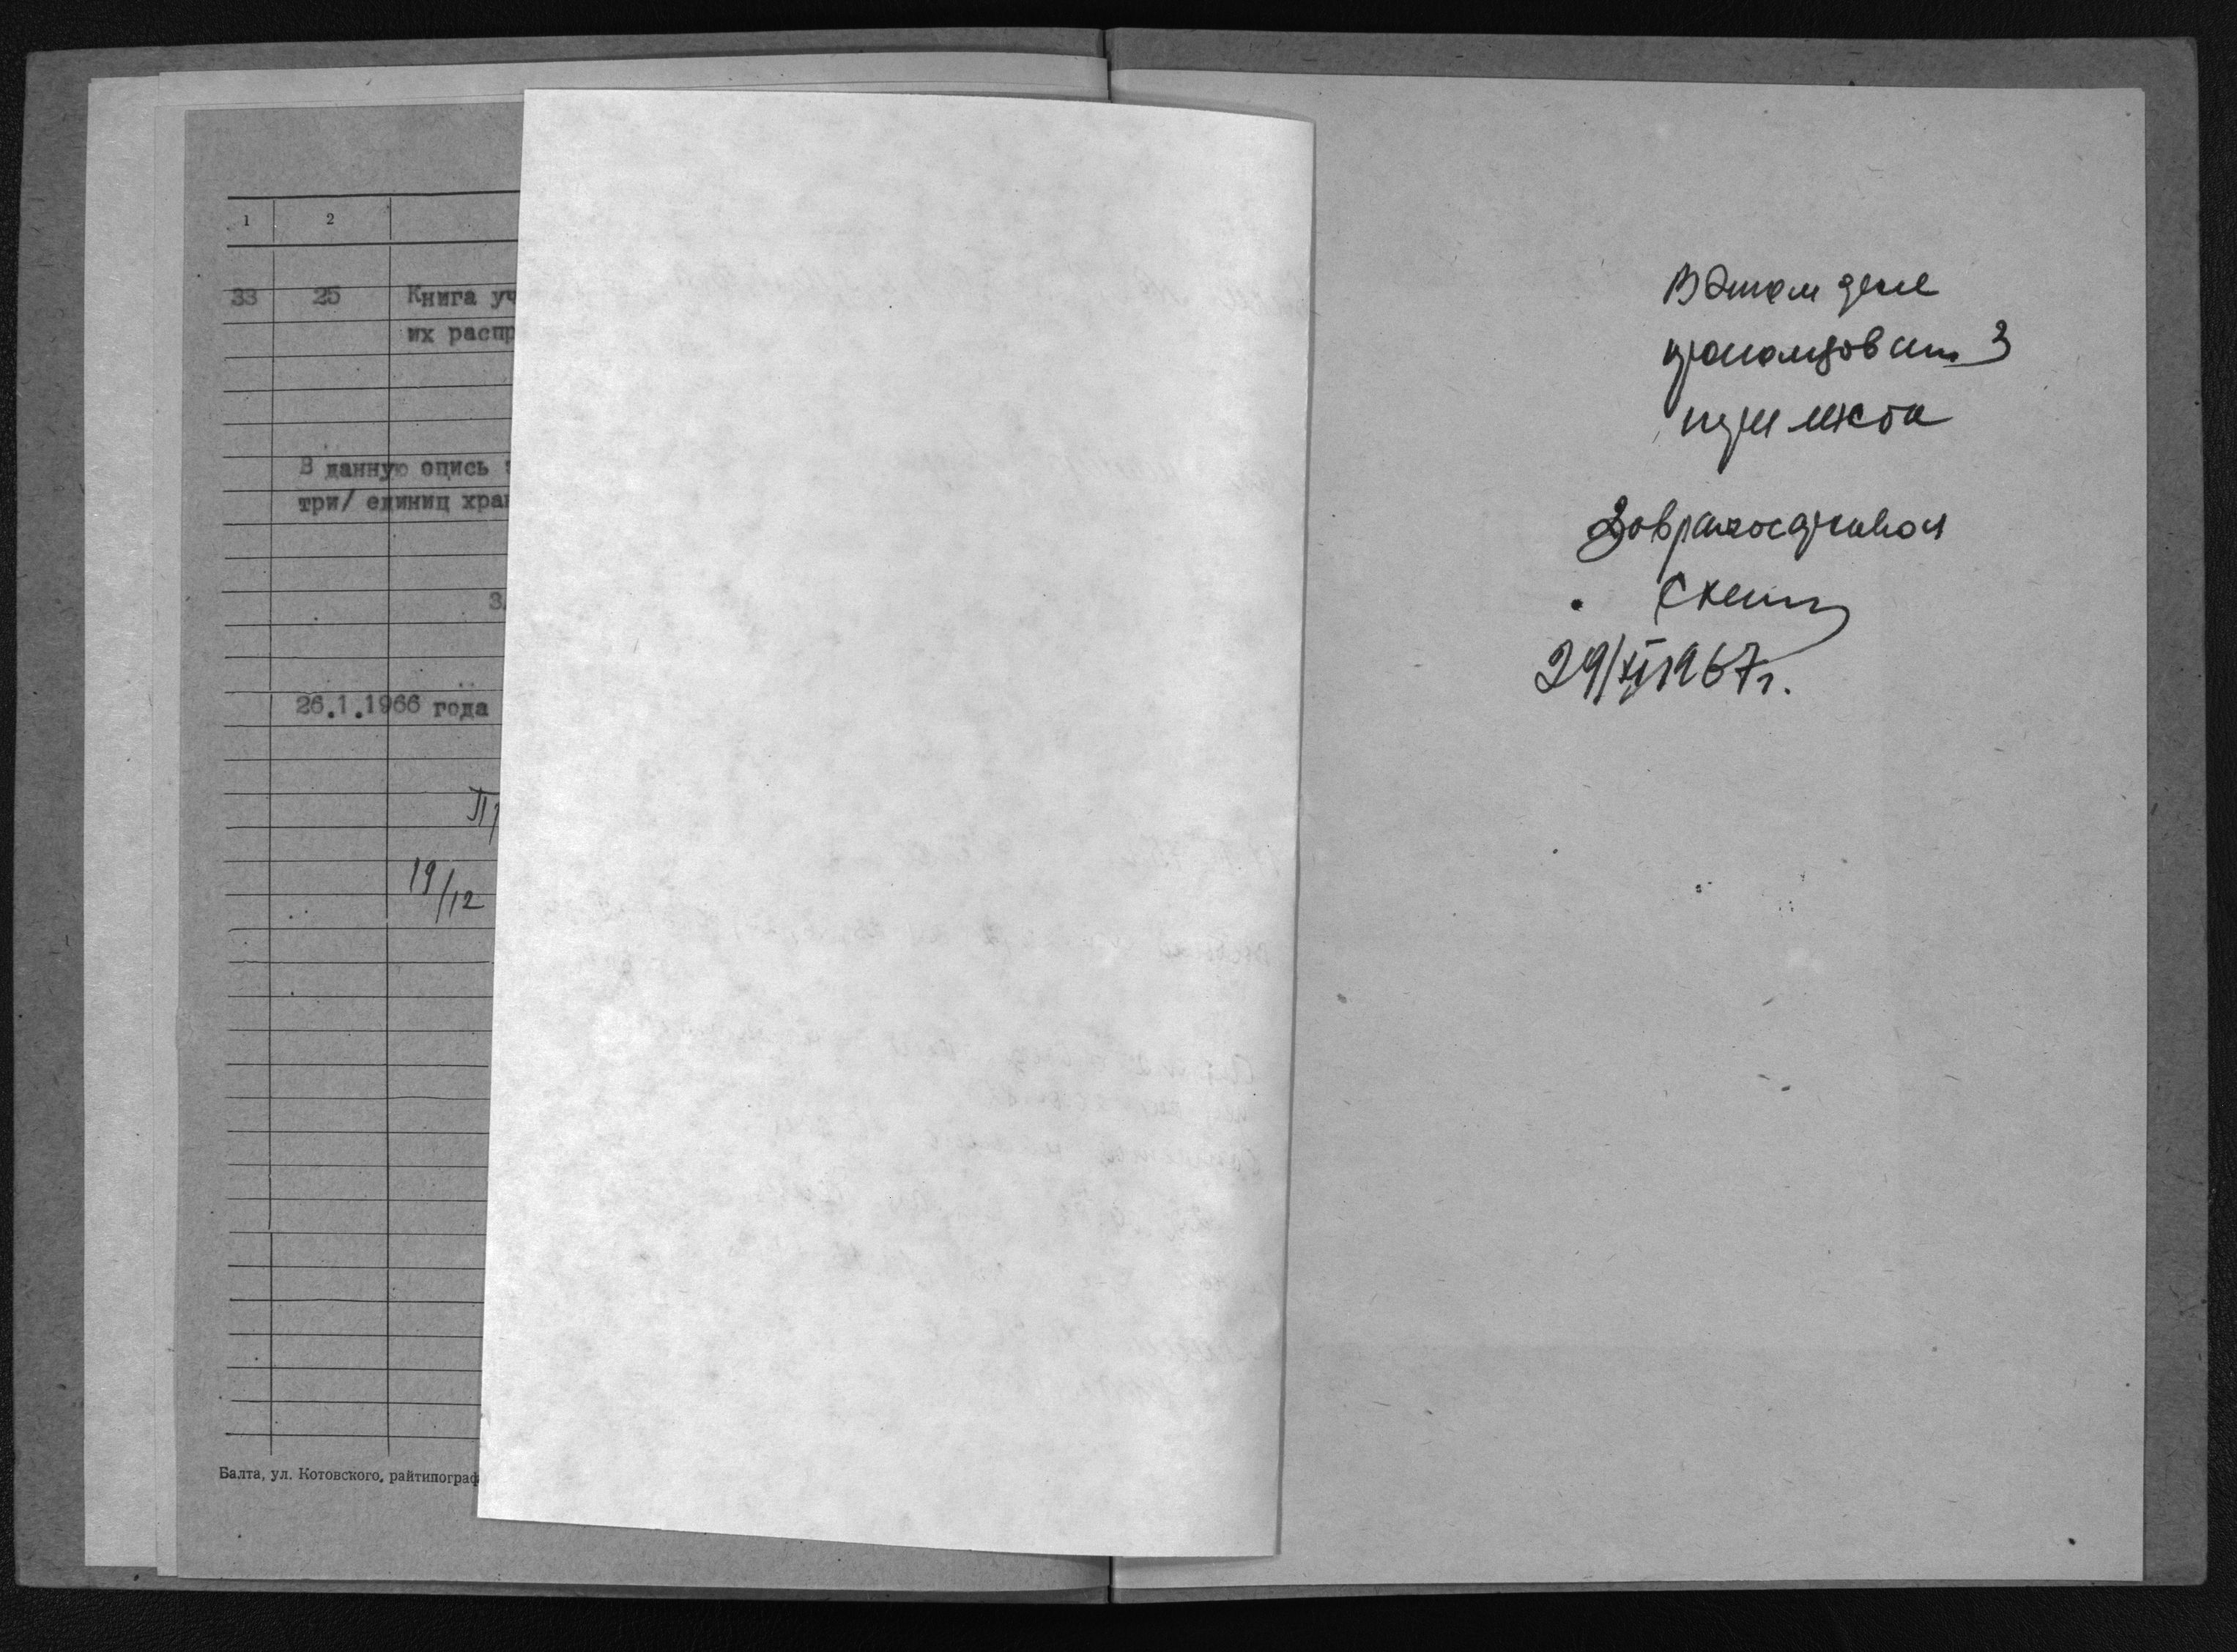 1 2
33 25 Книга уч
их распр
В данную опись
три/ единиц хран
26.1.1966 года
Пр
19/12
Балта, ул. Котовского, райтипограф
В этом деле
пронумерован 3
три листа
Зав райгосархивом
29/XI 1967 г.